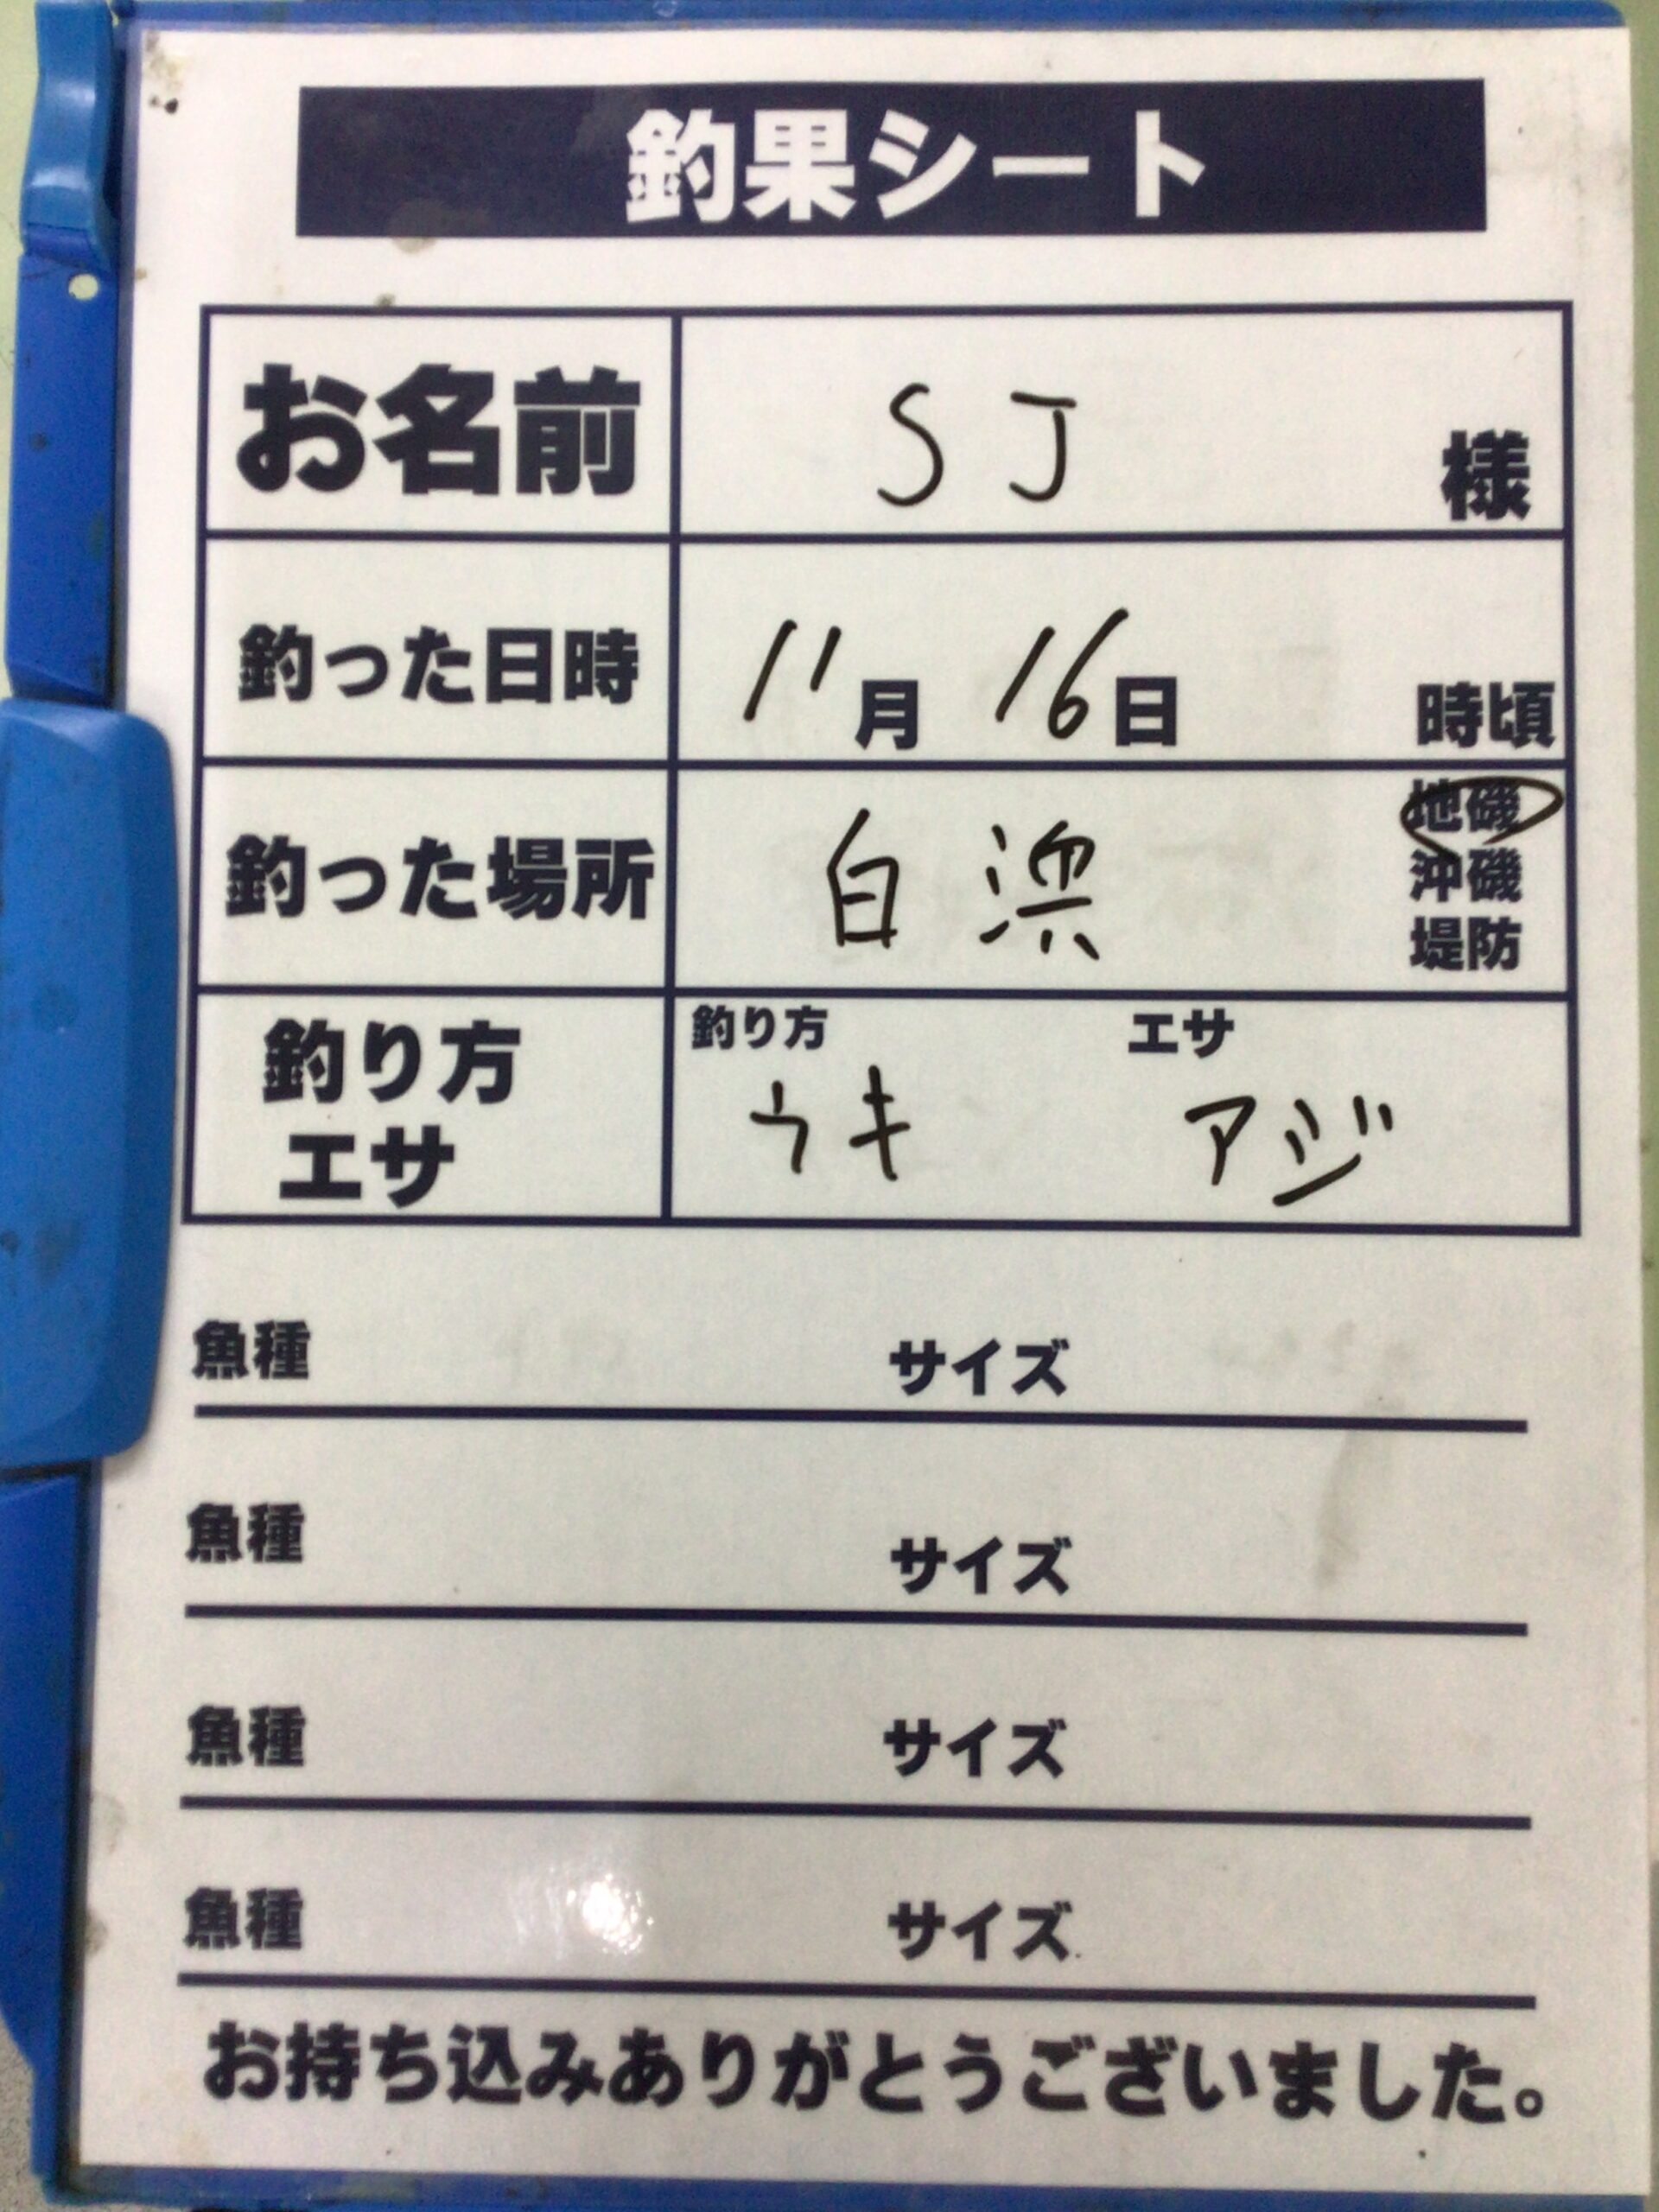 釣果シート
お名前 SJ 様
釣った日時 11月 16日 時頃
釣った場所 白浜 地磯
沖磯
堤防
釣り方 エサ
釣り方 ウキ アジ
エサ
魚種 サイズ
魚種 サイズ
魚種 サイズ
魚種 サイズ
お持ち込みありがとうございました。